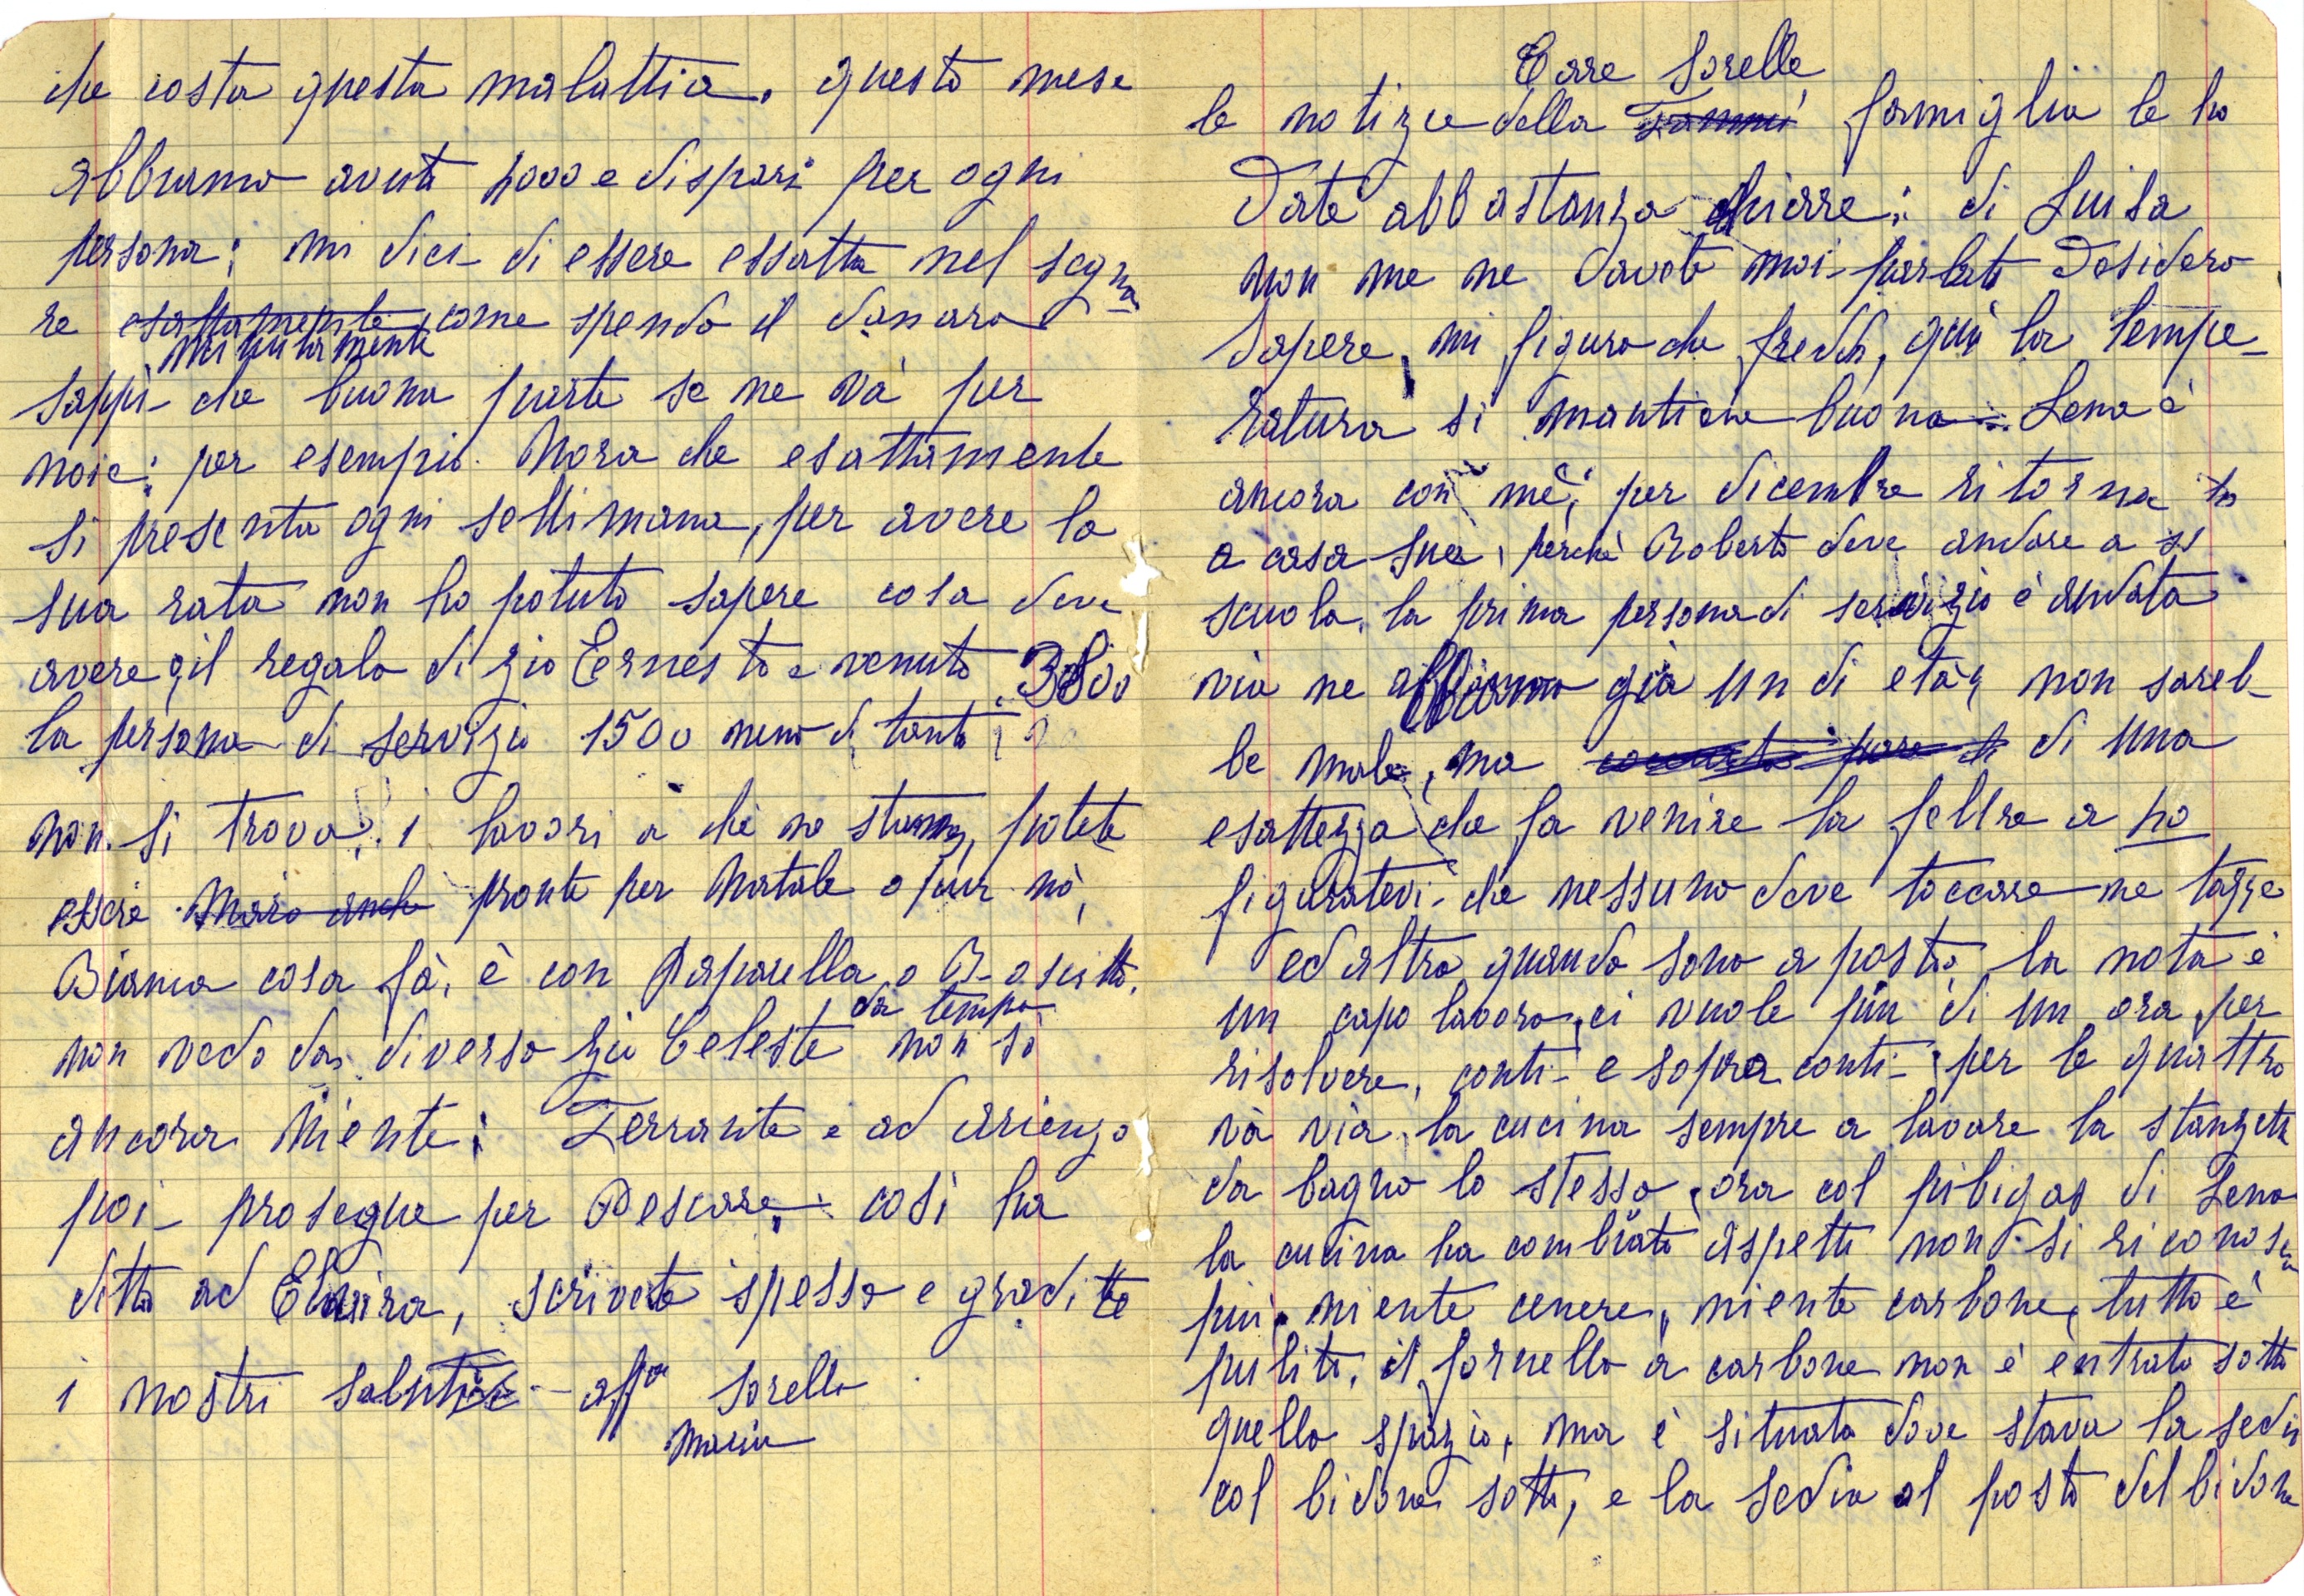 che costa questa malattia. questo mese
abbiamo avuto 9000 e dispari per ogni
persona; mi dici di essere essatta nel segna
re esattamente come spendo il danaro
minutamente
sappi che buona parte se ne và per
noie: per esempio Nora che esattamente
si presenta ogni settimana, per avere la
sua rata non ho potuto sapere cosa deve
avere, il regalo di zio Ernesto e venuto 3800
la persona di servizio 1500 meno di tanto
non si trova; i lavori a che ne stanno, potete
essere pronte per Natale o pur nò,
Bianca cosa fà, è con Paparella o B. ascitto.
da tempo
non vedo da diverso zia Celeste non sò
ancora niente; Ferrante e ad arienzo
poi prosegue per Pescara; così ha
ditto ad Elvira, scrivete spesso e gradite
i nostri saluti aff.a sorella
Maria
Care Sorelle
le notizie della famiglia le ho
Date abbastanza chiare; di Luisa
non me ne avete mai parlato Desidero
sapere, mi figuro che freddo, quì la tempe-
ratura si mantiene buona. Lena è
ancora con mè, per dicembre ritorna
a casa sua, perchè Roberto deve andare a
scuola. la prima persona di servizio è andata
via ne abbiamo già un di età, non sareb-
be male, ma di una
esattezza che fa venire la febbre a ho
figuratevi che nessuno deve toccare ne tazze
ed altro quando sono a posto la nota è
un capo lavoro, ci vuole più di un ora per
risolvere, conti e sopra conti; per le quattro
và via, la cucina sempre a lavare la stanzeta
da bagno lo stesso, ora col pibigas di Lena
la cucina ha combiato aspetto non si riconosce
più, niente cenere, niente carbone, tutto è
pulito. il fornello a carbone non è entrato sotto
quello spazio, ma è situato dove stava la sedia
col bidone sotto, e la sedia al posto del bidone